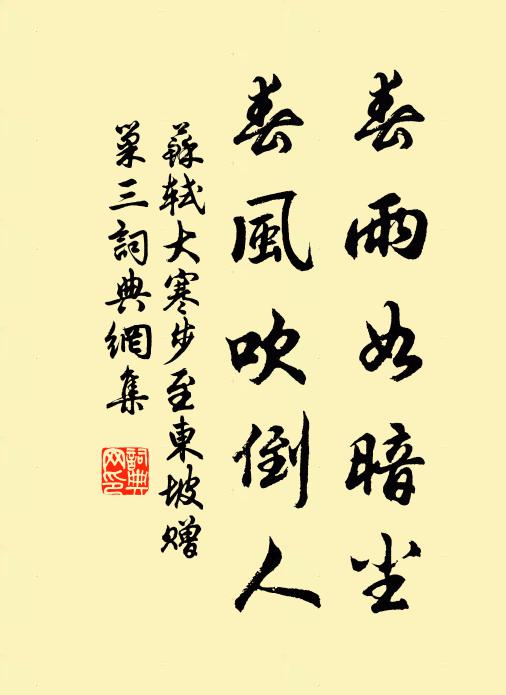 春雨如暗尘
春風吹倒人
蘇軾大寒步至東坡赠
巢三詞典網集
詞典
网印